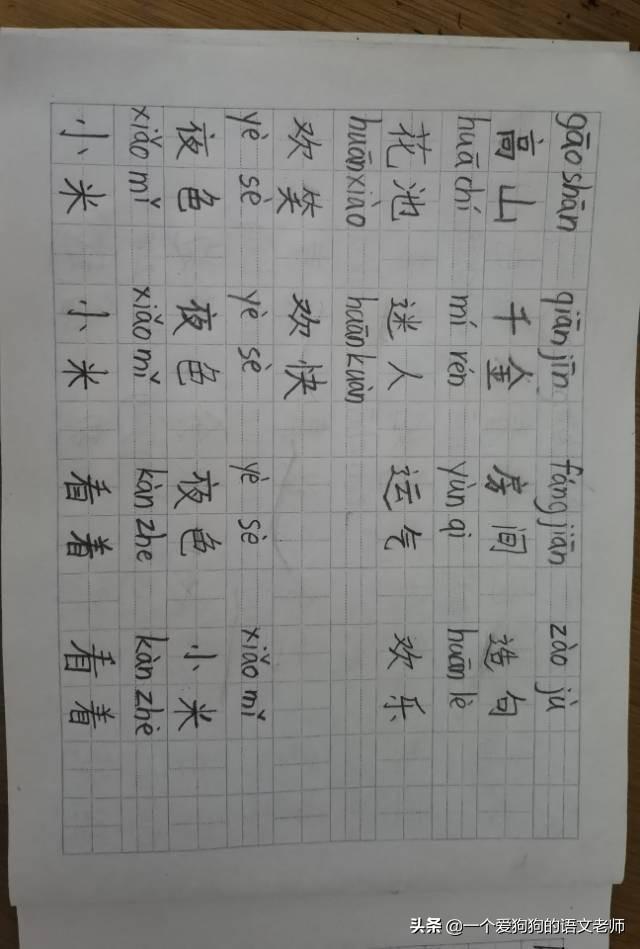 gāoshān qiānjīn fángjiān zào jù
高山 千金 房间 造句
huā chí mí rén yùn qì huān lè
花池 迷人 运气 欢乐
huānxiào huānkuàn
欢笑 欢快
yè sè yè sè yè sè xiǎo mǐ
夜色 夜色 夜色 小米
xiǎo mǐ xiǎo mǐ kàn zhe kàn zhè
小米 小米 看着 看着
头条 @一个爱狗狗的语文老师